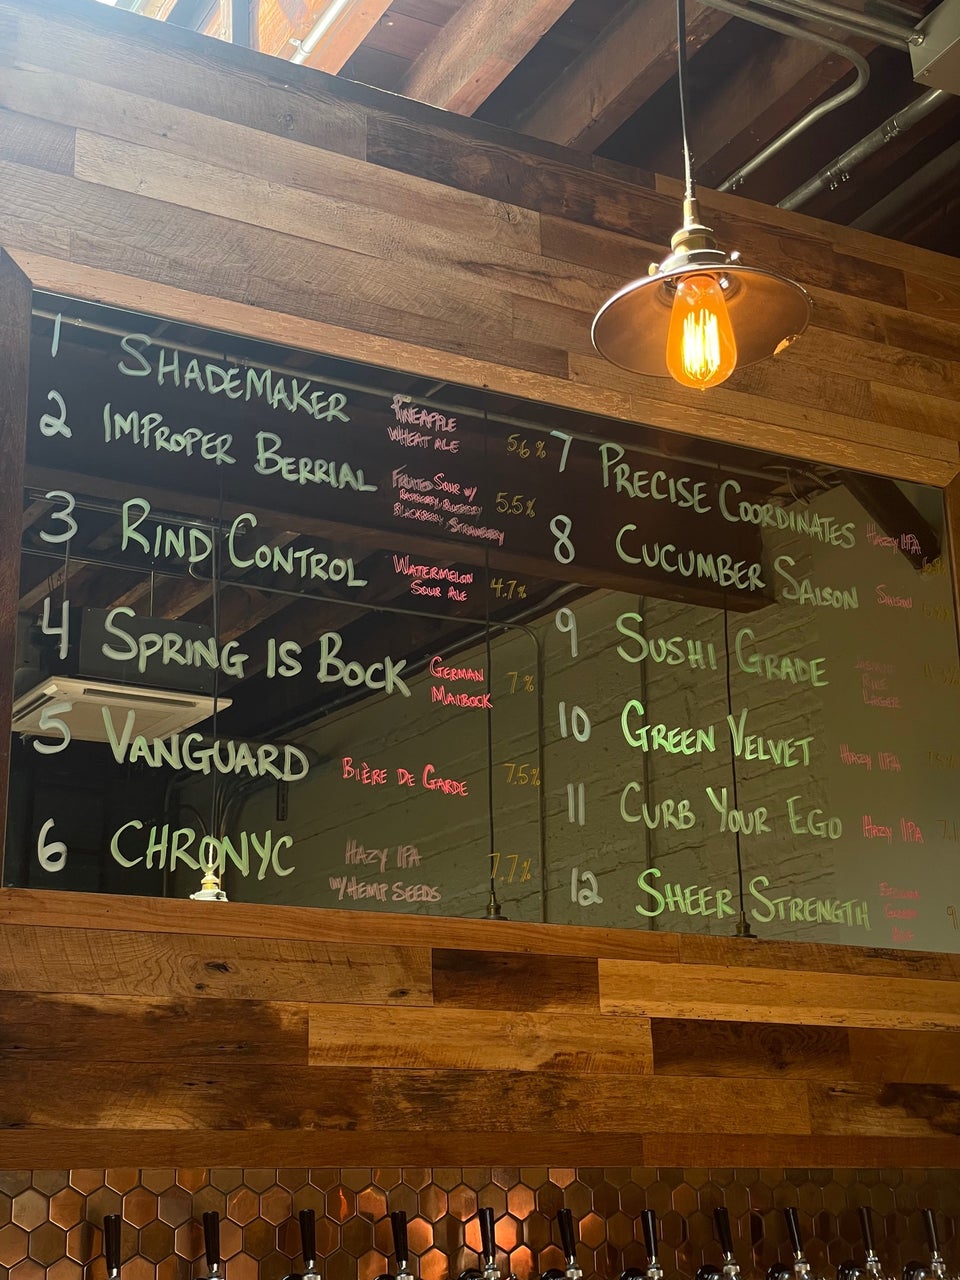 1 SHADEMAKER
PINEAPPLE
WHEAT ALE
5.6%
2 IMPROPER BERRIAL
FRUITED SOUR W/
RASPBERRY, BLUEBERRY
BLACKBERRY, STRAWBERRY
5.5%
3 RIND CONTROL
WATERMELON
SOUR ALE
4.7%
4 SPRING IS BOCK
GERMAN
MAIBOCK
7%
5 VANGUARD
BIÈRE DE GARDE
7.5%
6 CHRONYC
HAZY IPA
W/HEMP SEEDS
7.7%
7 PRECISE COORDINATES
HAZY IPA
8 CUCUMBER SAISON
SAISON
9 SUSHI GRADE
RICE
LAGER
10 GREEN VELVET
HAZY IPA
11 CURB YOUR EGO
HAZY IPA
12 SHEER STRENGTH
ALE